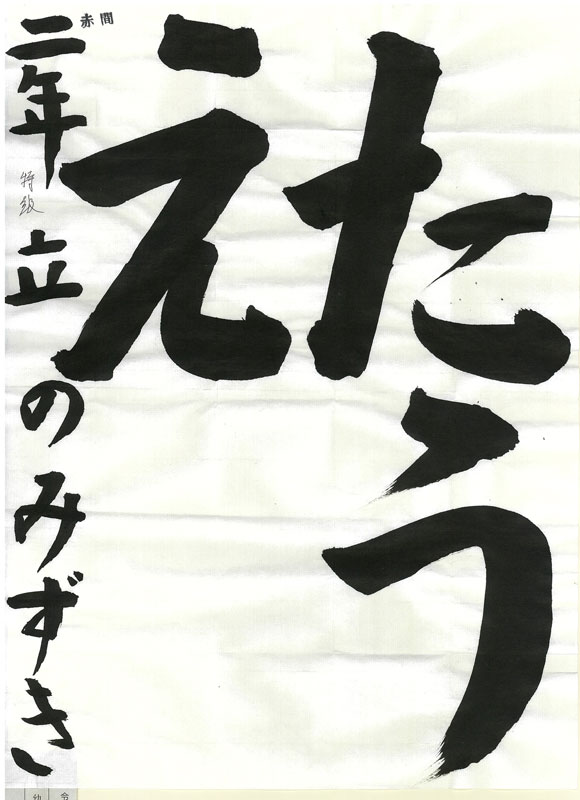 たう
え
赤間
二年 立のみずき
特級